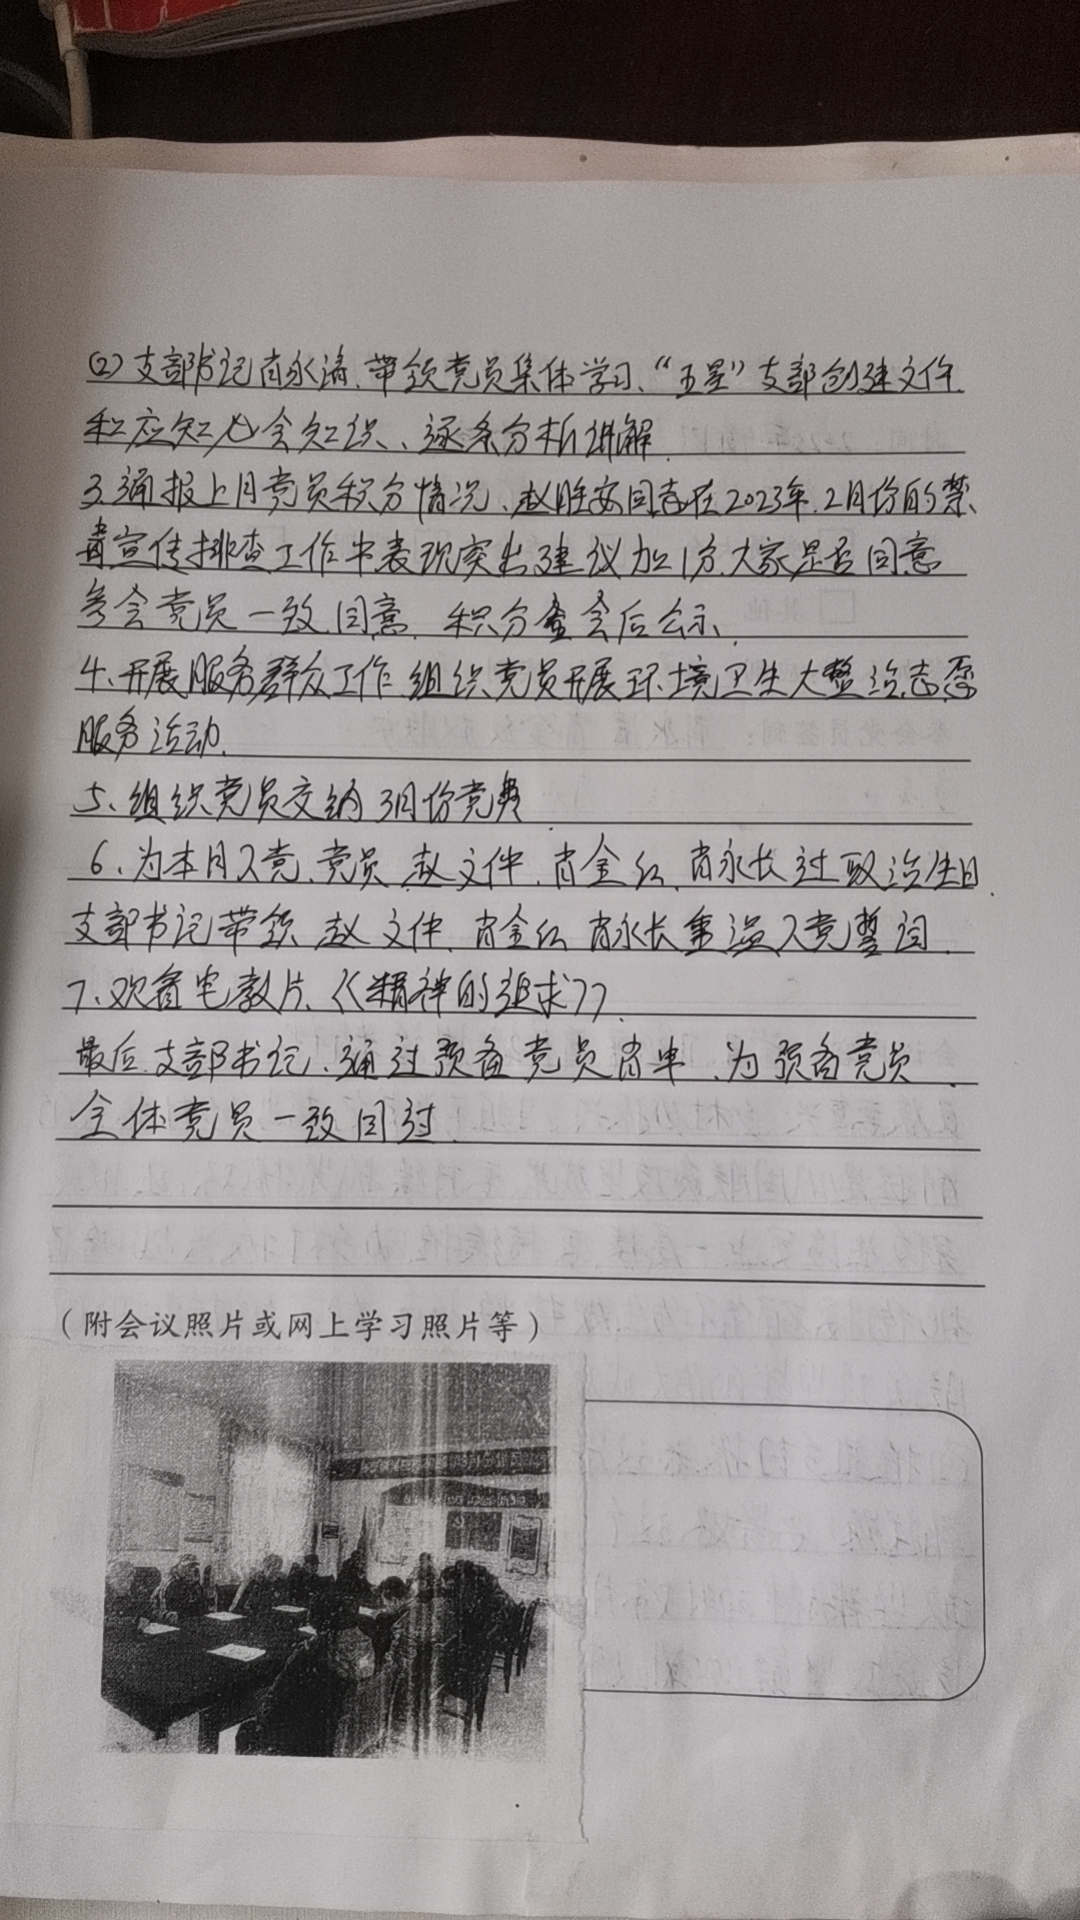 (2)支部书记肖永清、带领党员集体学习、“五星”支部创建文件
和应知必会知识、逐条分析讲解.
3.通报上月党员积分情况、赵胜安同志在2023年.2月份的禁、
毒宣传排查工作中表现突出建议加1分.大家是否同意
参会党员一致同意.积分会后公示.
4、开展服务群众工作.组织党员开展环境卫生大整治志愿
服务活动.
5、组织党员交纳3月份党费
6、为本月入党、党员.赵文件.肖金红.肖永长过政治生日.
支部书记带领.赵文件.肖金红肖永长重温入党誓词.
7、观看电教片、《精神的追求》.
最后.支部书记、通过预备党员肖申、为预备党员.
全体党员一致同过.
（附会议照片或网上学习照片等）